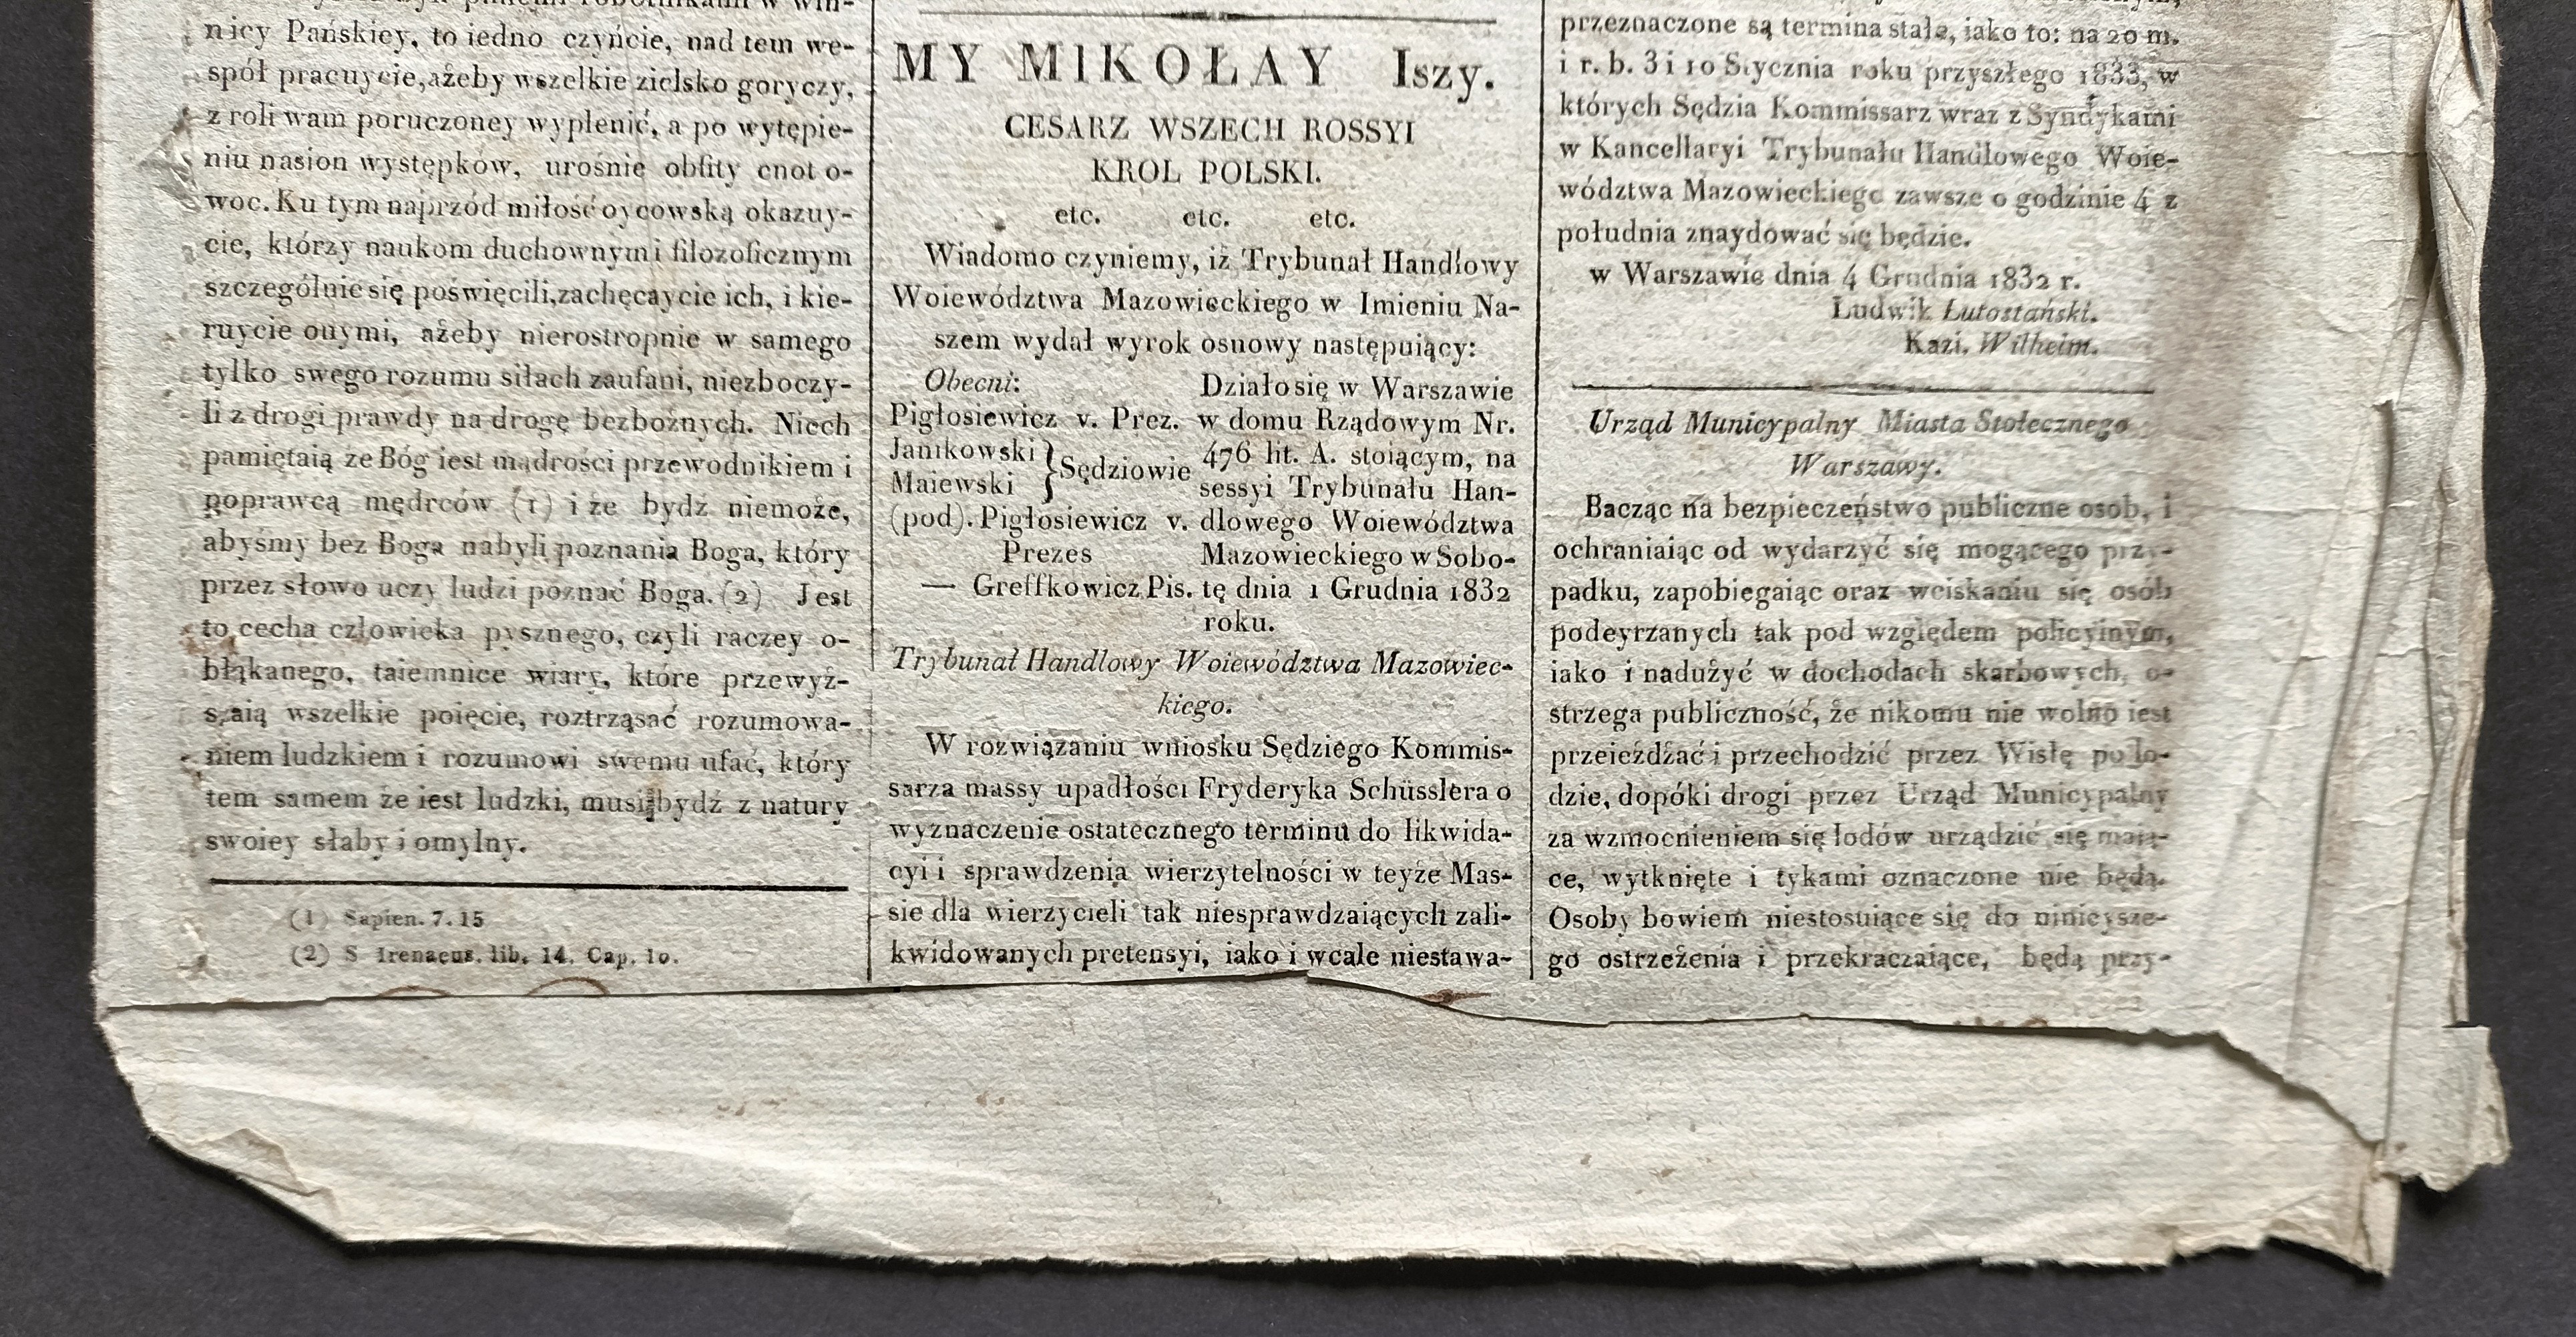 nicy Pańskiey, to iedno czyńcie, nad tem we-
spół pracuycie, ażeby wszelkie zielsko goryczy,
z roli wam poruczoney wyplenić, a po wytępie-
niu nasion występków, urośnie obfity cnot o-
woc. Ku tym naprzód miłość oycowską okazuy-
cie, którzy naukom duchownym i filozoficznym
szczególnie się poświęcili, zachęcaycie ich, i kie-
ruycie onymi, ażeby nierostropnie w samego
tylko swego rozumu siłach zaufani, niezboczy-
li z drogi prawdy na drogę bezbożnych. Niech
pamiętaią że Bóg iest mądrości przewodnikiem i
poprawcą mędrców (1) i że bydź niemoże,
abyśmy bez Boga nabyli poznania Boga, który
przez słowo uczy ludzi poznać Boga. (2) Jest
to cecha człowieka pysznego, czyli raczey o-
błąkanego, taiemnice wiary, które przewyż-
szaią wszelkie poięcie, roztrząsać rozumowa-
niem ludzkiem i rozumowi swemu ufać, który
tem samem że iest ludzki, musi bydź z natury
swoiey słaby i omylny.
(1) Sapien. 7. 15
(2) S Irenaeus. lib. 14. Cap. 10.
MY MIKOŁAY Iszy.
CESARZ WSZECH ROSSYI
KROL POLSKI.
etc. etc. etc.
Wiadomo czyniemy, iż Trybunał Handlowy
Woiewództwa Mazowieckiego w Imieniu Na-
szem wydał wyrok osnowy następuiący:
Obecni:
Pigłosiewicz v. Prez.
Janikowski
Maiewski } Sędziowie
(pod). Pigłosiewicz v.
Prezes
— Greffkowicz Pis.
Działo się w Warszawie
w domu Rządowym Nr.
476 lit. A. stoiącym, na
sessyi Trybunału Han-
dlowego Woiewództwa
Mazowieckiego w Sobo-
tę dnia 1 Grudnia 1832
roku.
Trybunał Handlowy Woiewództwa Mazowiec-
kiego.
W rozwiązaniu wniosku Sędziego Kommis-
sarza massy upadłości Fryderyka Schüsslera o
wyznaczenie ostatecznego terminu do likwida-
cyi i sprawdzenia wierzytelności w teyże Mas-
sie dla wierzycieli tak niesprawdzaiących zali-
kwidowanych pretensyi, iako i wcale niestawa-
przeznaczone są termina stałe, iako to: na 20 m.
i r. b. 3 i 10 Stycznia roku przyszłego 1833, w
których Sędzia Kommissarz wraz z Syndykami
w Kancellaryi Trybunału Handlowego Woie-
wództwa Mazowieckiego zawsze o godzinie 4 z
południa znaydować się będzie.
w Warszawie dnia 4 Grudnia 1832 r.
Ludwik Lutostański.
Kazi. Wilhelm.
Urząd Municypalny Miasta Stołecznego
Warszawy.
Bacząc na bezpieczeństwo publiczne osob, i
ochraniaiąc od wydarzyć się mogącego przy-
padku, zapobiegaiąc oraz wciskaniu się osób
podeyrzanych tak pod względem policyinym,
iako i nadużyć w dochodach skarbowych, o-
strzega publiczność, że nikomu nie wolno iest
przeieżdżać i przechodzić przez Wisłę po lo-
dzie, dopóki drogi przez Urząd Municypalny
za wzmocnieniem się lodów urządzić się maią-
ce, wytknięte i tykami oznaczone nie będą.
Osoby bowiem niestosuiące się do ninieysze-
go ostrzeżenia i przekraczaiące, będą przy-